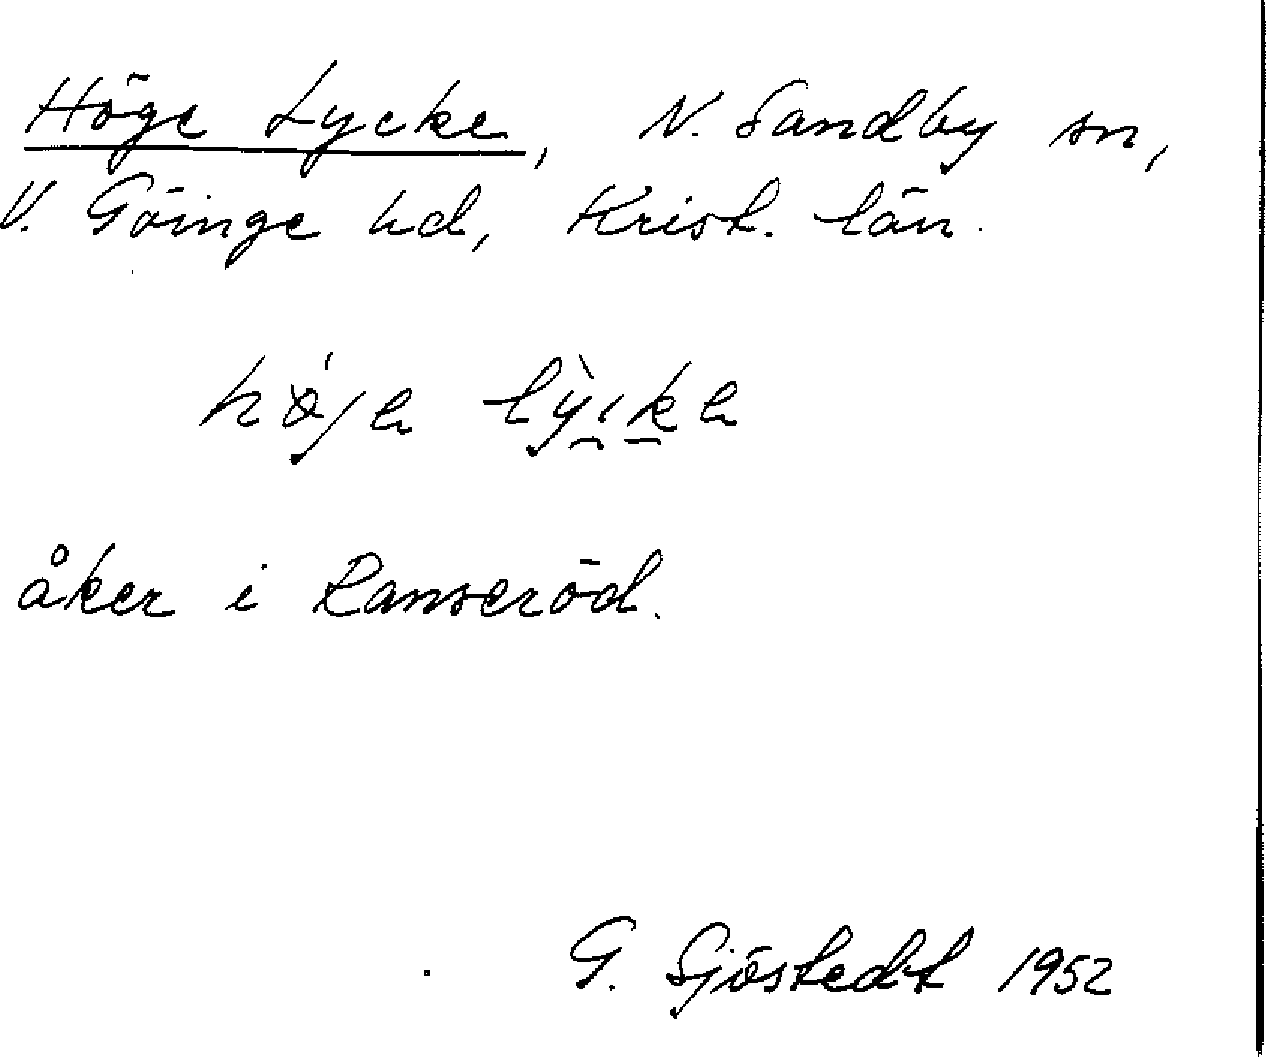 Höge Lycke, N. Sandby sn,
V. Göinge hd, Krist. län.
åker i Ranseröd.
G. Sjöstedt 1952